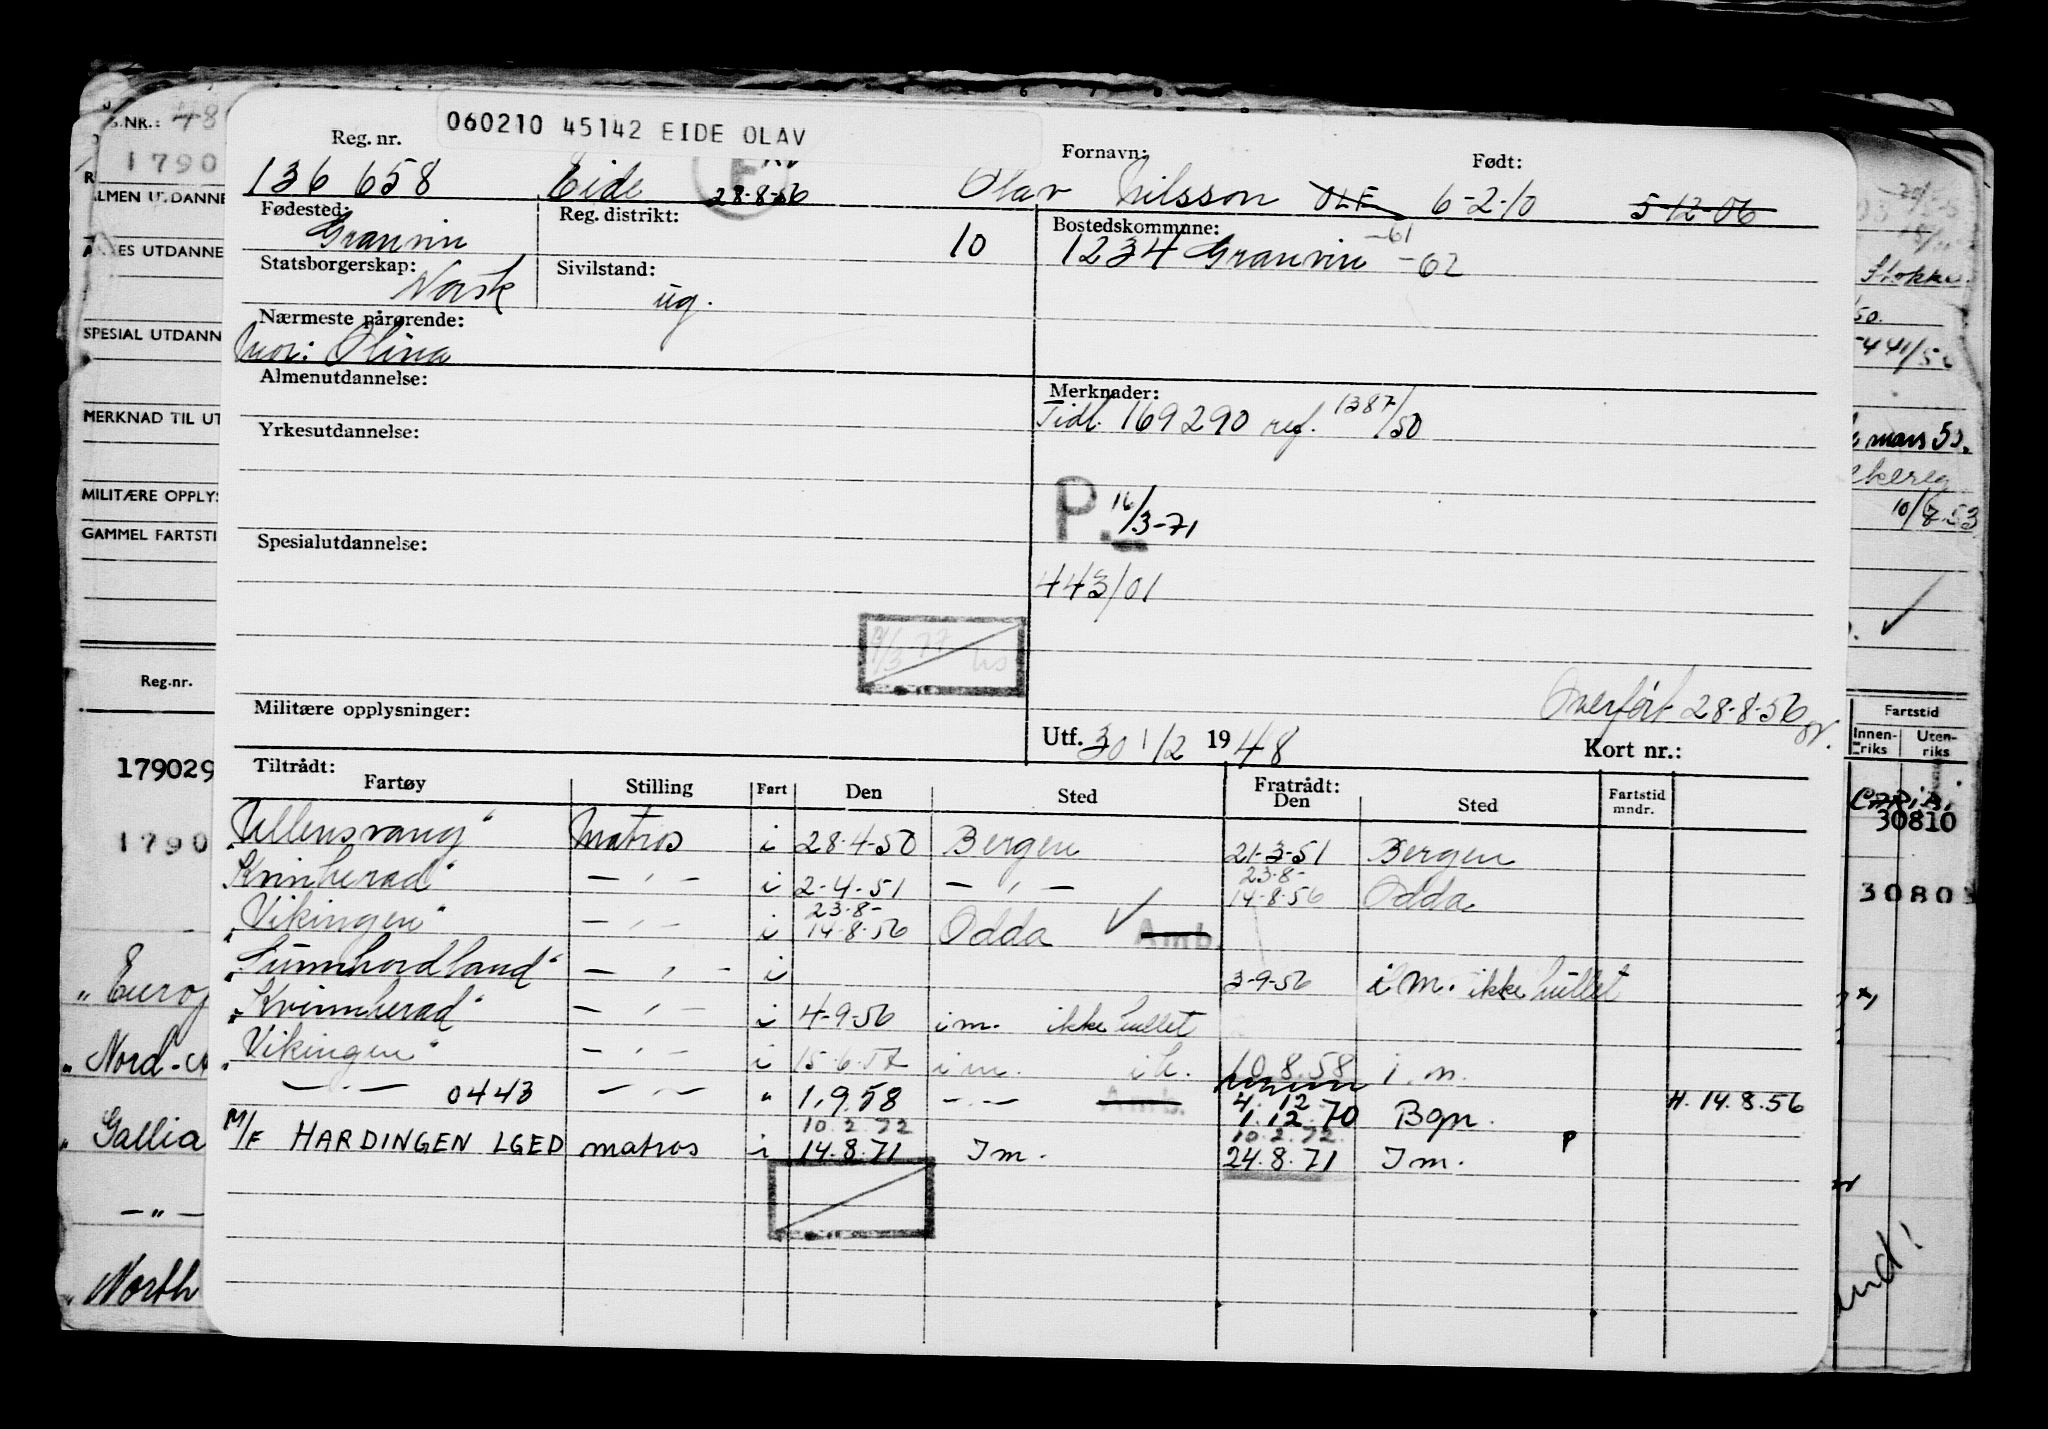 060210 45142 EIDE OLAV
Reg. nr. Fornavn: Født:
136 658 Eide 28-8-56 Olav Nilsson OLE 6-2-10 5-12-06
Fødested: Granvin Reg. distrikt: 10 Bostedskommune: 1234 Granvin -61 -62
Statsborgerskap: Norsk Sivilstand: ug.
Nærmeste pårørende:
Mor: Olina
Almenutdannelse: Merknader:
Tidl. 169290 ref. 1387/50
Yrkesutdannelse:
P. 16/3-71
Spesialutdannelse:
443/01
Overført 28-8-56
Militære opplysninger: Utf. 30 1/2 1948 Kort nr.:
Tiltrådt: Fratrådt:
Fartøy Stilling Fart Den Sted Den Sted Fartstid mndr.
"Ullensvang" Matros i 28-4-50 Bergen 21-3-51 Bergen
"Kvinherad" — " — i 2-4-51 — " — 23-8- 14-8-56 Odda
"Vikingen" — " — i 23-8- 14-8-56 Odda Amb.
"Sunnhordland" — " — i 3-9-56 i m. ikke hullet
"Kvinnherad" — " — i 4-9-56 i m. ikke hullet
"Vikingen" — " — i 15-6-57 i m. i h. 10.8.58 i. m.
— " — 0443 — " — " 1.9.58 — " — Amb. 4. 12 1.12.70 Bgn. H. 14.8.56
10.2.72 10.2.72.
M/F HARDINGEN LGED matros i 14.8.71 Im. 24.8.71 Im. P
S.NR.: 48
1790
SPESIAL UTDANN
MERKNAD TIL UT
MILITÆRE OPPLYS
GAMMEL FARTSTI
Reg.nr.
179029
1790
"Europ
"Nord-A
"Gallia
— " —
"North
441/5
mars 53.
10/8-53
Fartstid
Innen-riks Uten-riks
CARIB.
30810
3080